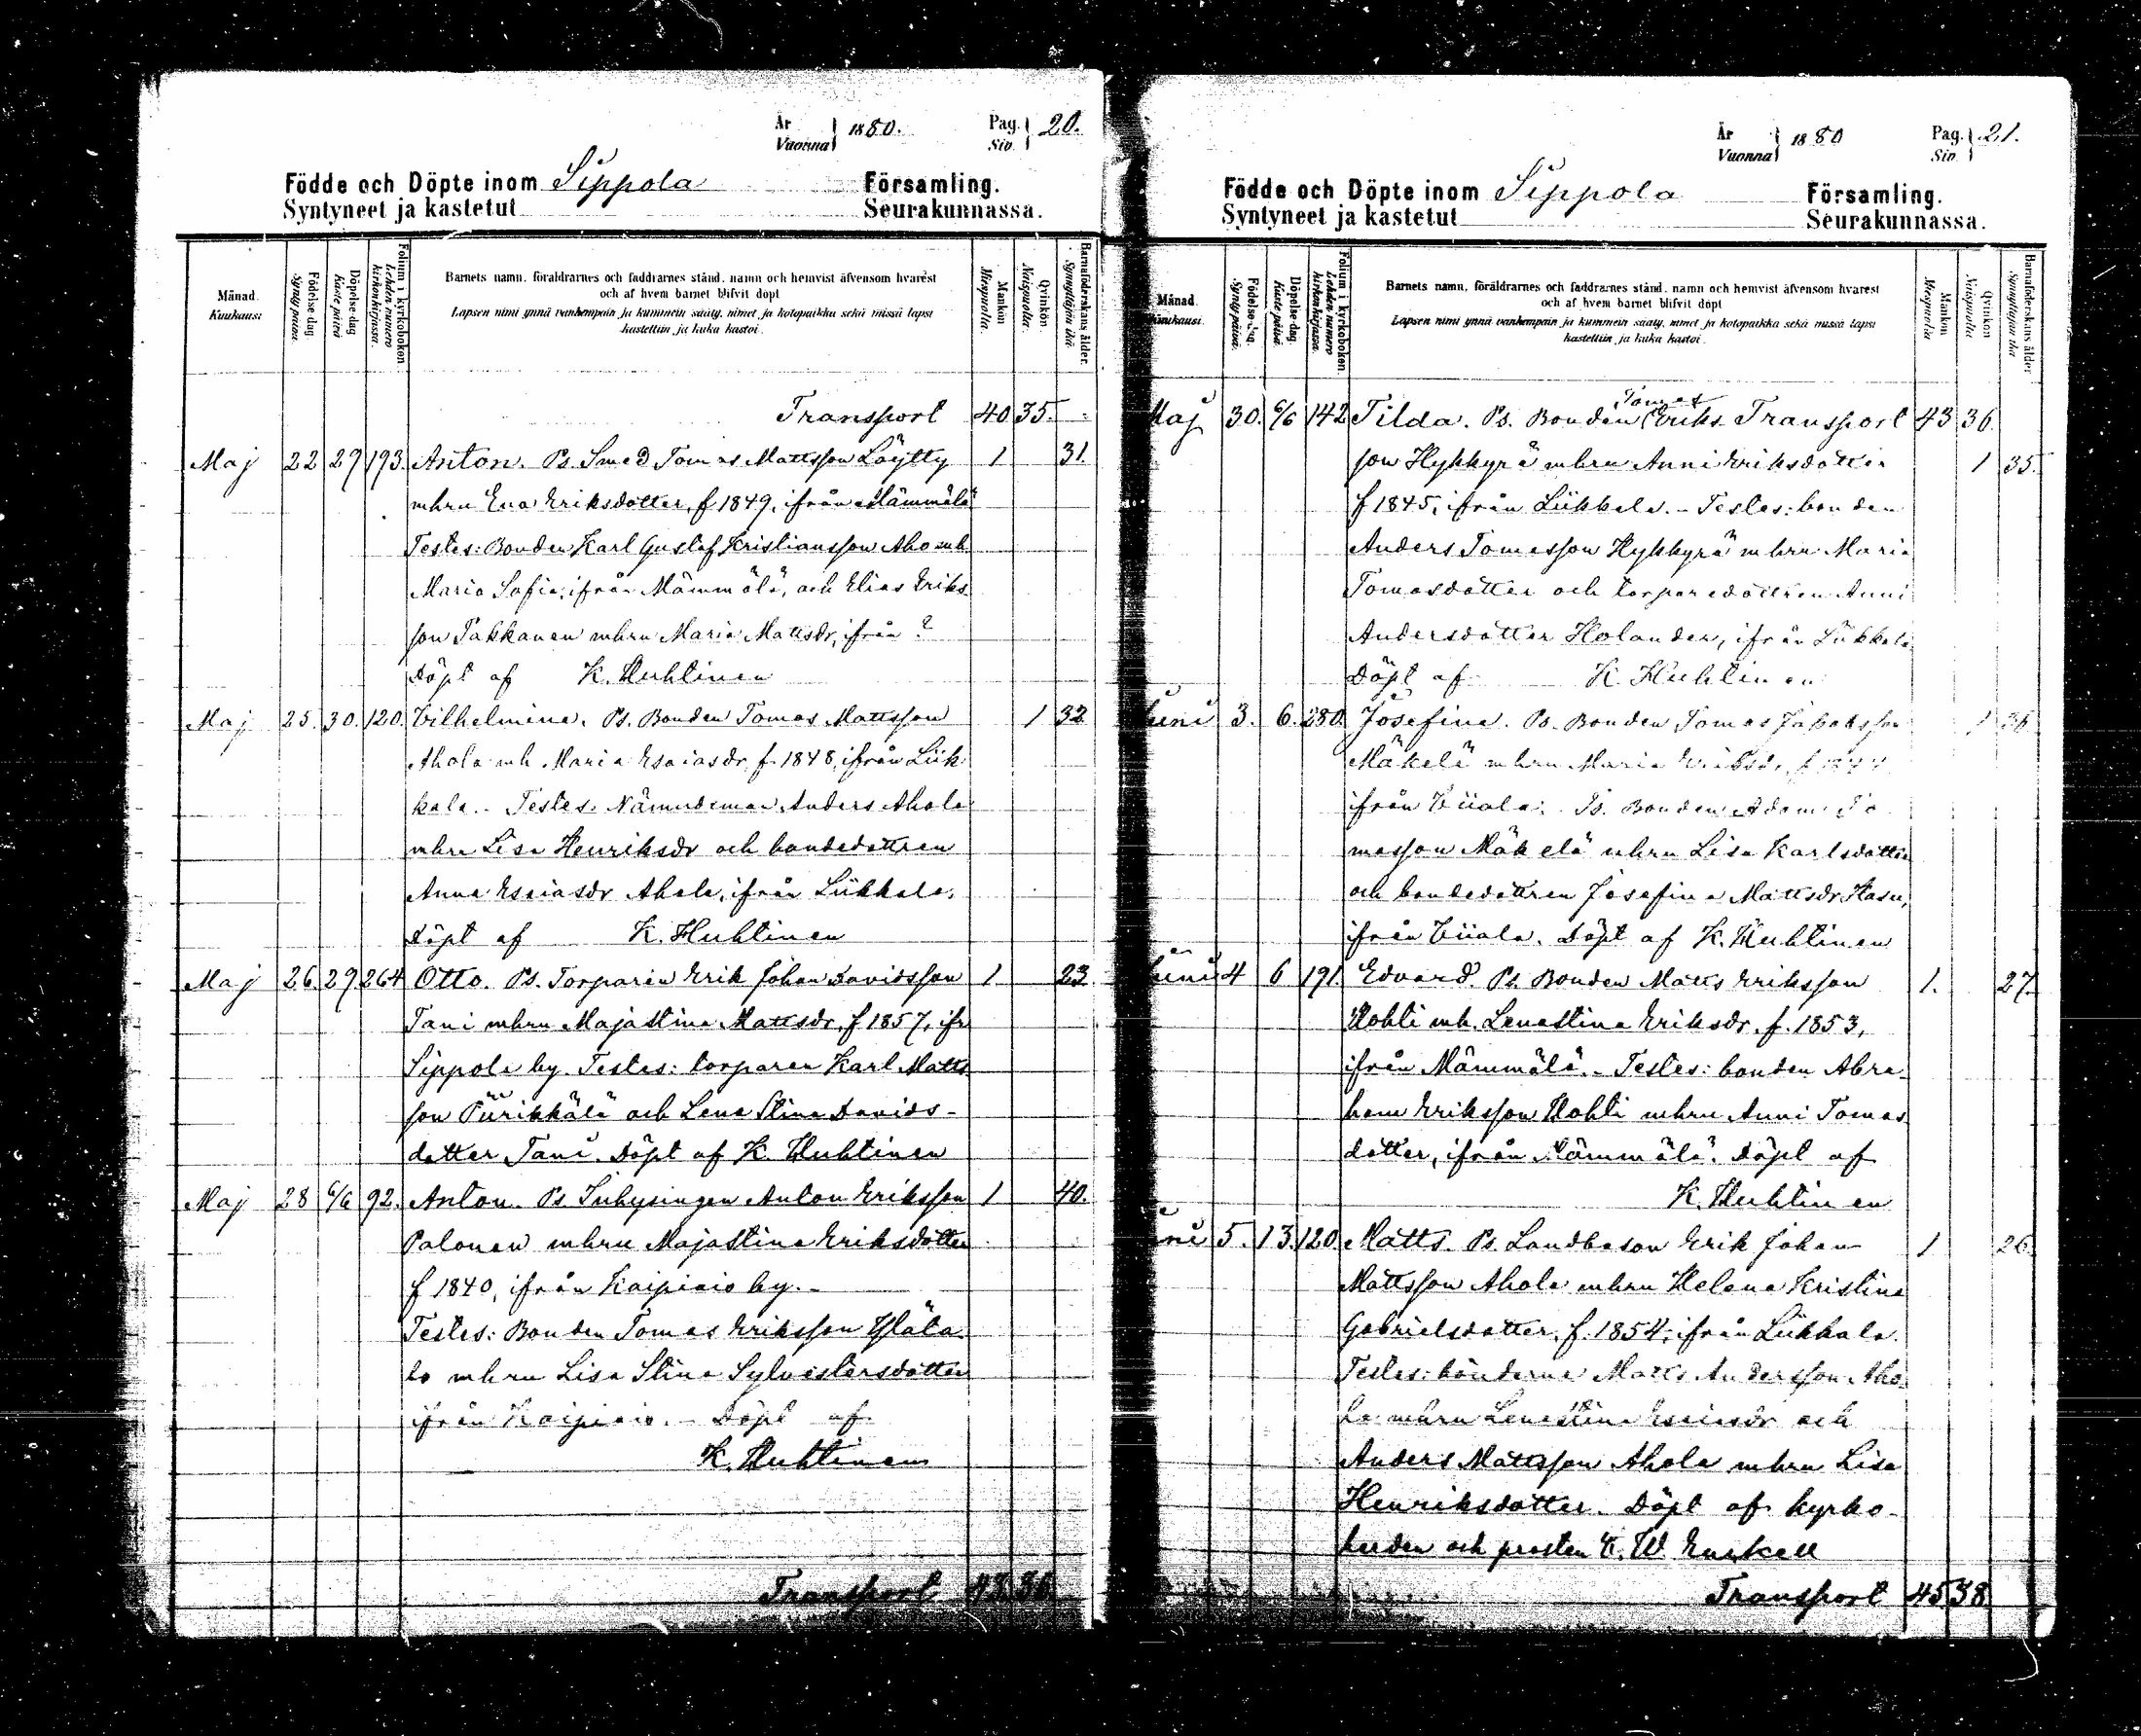 År Vuonna 1880. Pag. Siv. 20.
Födde och Döpte inom Sippola Församling.
Syntyneet ja kastetut Seurakunnassa.
Månad. Kuukausi.
Födelse dag. Synty päivä.
Döpelse dag. Kaste päivä
Folium i kyrkoboken. Lehden numero kirkonkirjassa.
Barnets namn, föräldrarnes och faddrarnes stånd, namn och hemvist äfvensom hvarest
och af hvem barnet blifvit döpt
Lapsen nimi ynnä vanhempain ja kummein sääty, nimet ja kotopaikka sekä missä lapsi
kastettiin ja kuka kastoi.
Mankön Miespuolia.
Qvinkön. Naispuolia.
Barnaföderskans ålder. Synnyttäjän ikä
Transport 40 35.
Maj 22 29 193. Anton. Ps. Smed Tomas Mattsson Löytty 1 31.
mhru Eva Eriksdotter, f 1849, ifrån Mämmälä
Testes: Bonden Karl Gustaf Kristiansson Aho mh
Maria Sofia, ifrån Mämmälä, och Elias Eriks-
son Pakkanen mhru Maria Mattsdr, ifrån ?
Döpt af K. Huhtinen
Maj 25. 30. 120. Vilhelmina. Ps. Bonden Tomas Mattsson 1 32
Ahola mh Maria Esaiasdr, f 1848, ifrån Liik
kala. Testes: Nämndeman Anders Ahola
mhru Lisa Henriksdr och bondedottren
Anna Esaiasdr Ahola, ifrån Liikkala.
Döpt af K. Huhtinen
Maj 26. 29 264 Otto. Ps. Torparen Erik Johan Davidsson 1 23.
Tani mhru Majastina Mattsdr, f 1857, ifr
Sippola by. Testes: torparen Karl Matts
son Piirikkälä och Lena Stina Davids-
dotter Tani. Döpt af K. Huhtinen
Maj 28 6/6 92. Anton. Ps. Inhysingen Anton Eriksson 1 40.
Palonen mhru Majastina Eriksdotter
f 1840, ifrån Kaipiais by.-
Testes: Bonden Tomas Eriksson Yläta-
lo mhru Lisa Stina Sylvestersdotter
ifrån Kaipiais. - Döpt af
K. Huhtinen
Transport 43 36
År Vuonna 1880 Pag. Siv. 21.
Födde och Döpte inom Sippola Församling.
Syntyneet ja kastetut Seurakunnassa.
Månad. Kuukausi.
Födelse dag. Synty päivä.
Döpelse dag. Kaste päivä.
Folium i kyrkoboken. Lehden numero kirkonkirjassa.
Barnets namn, föräldrarnes och faddrarnes stånd, namn och hemvist äfvensom hvarest
och af hvem barnet blifvit döpt
Lapsen nimi ynnä vanhempain ja kummein sääty, nimet ja kotopaikka sekä missä lapsi
kastettiin ja kuka kastoi.
Mankön Miespuolia
Qvinkön Naispuolia
Barnaföderskans ålder Synnyttäjän ikä
Tomas
Maj 30. 6/6 142 Tilda. Ps. Bonden Eriks- Transport 43 36.
son Hykkyrä mhru Anni Eriksdotter 1 35.
f 1845, ifrån Liikkala. - Testes: bonden
Anders Tomasson Hykkyrä mhru Maria
Tomasdotter och torparedottren Anni
Andersdotter Holander, ifrån Liikkala
Döpt af K. Huhtinen
Juni 3. 6. 280. Josefina. Ps. Bonden Tomas Jakobsson 1 36
Mäkelä mhru Maria Eriksdr, f 1844
ifrån Viiala. Ts. Bonden Adam To
masson Mäkelä mhru Lisa Karlsdotter
och bondedottren Josefina Mattsdr Hasu,
ifrån Viiala. Döpt af K. Huhtinen
Juni 4 6 191. Edvard. Ps. Bonden Matts Eriksson 1. 27.
Kohti mh. Lenastina Eriksdr. f. 1853,
ifrån Mämmälä. - Testes: bonden Abra-
ham Eriksson Kohti mhru Anni Tomas
dotter, ifrån Mämmälä. Döpt af
K. Huhtinen
Juni 5. 13. 120 Matts. Ps. Landboson Erik Johan 1 26.
Mattsson Ahola mhru Helena Kristina
Gabrielsdotter, f. 1854, ifrån Liikkala.
Testes: bönderna Matts Andersson Aho-
la mhru Lenastina Esaiasdr och
Anders Mattsson Ahola mhru Lisa
Henriksdotter. Döpt af kyrko-
herden och prosten K. W. Enckell
Transport 45 38